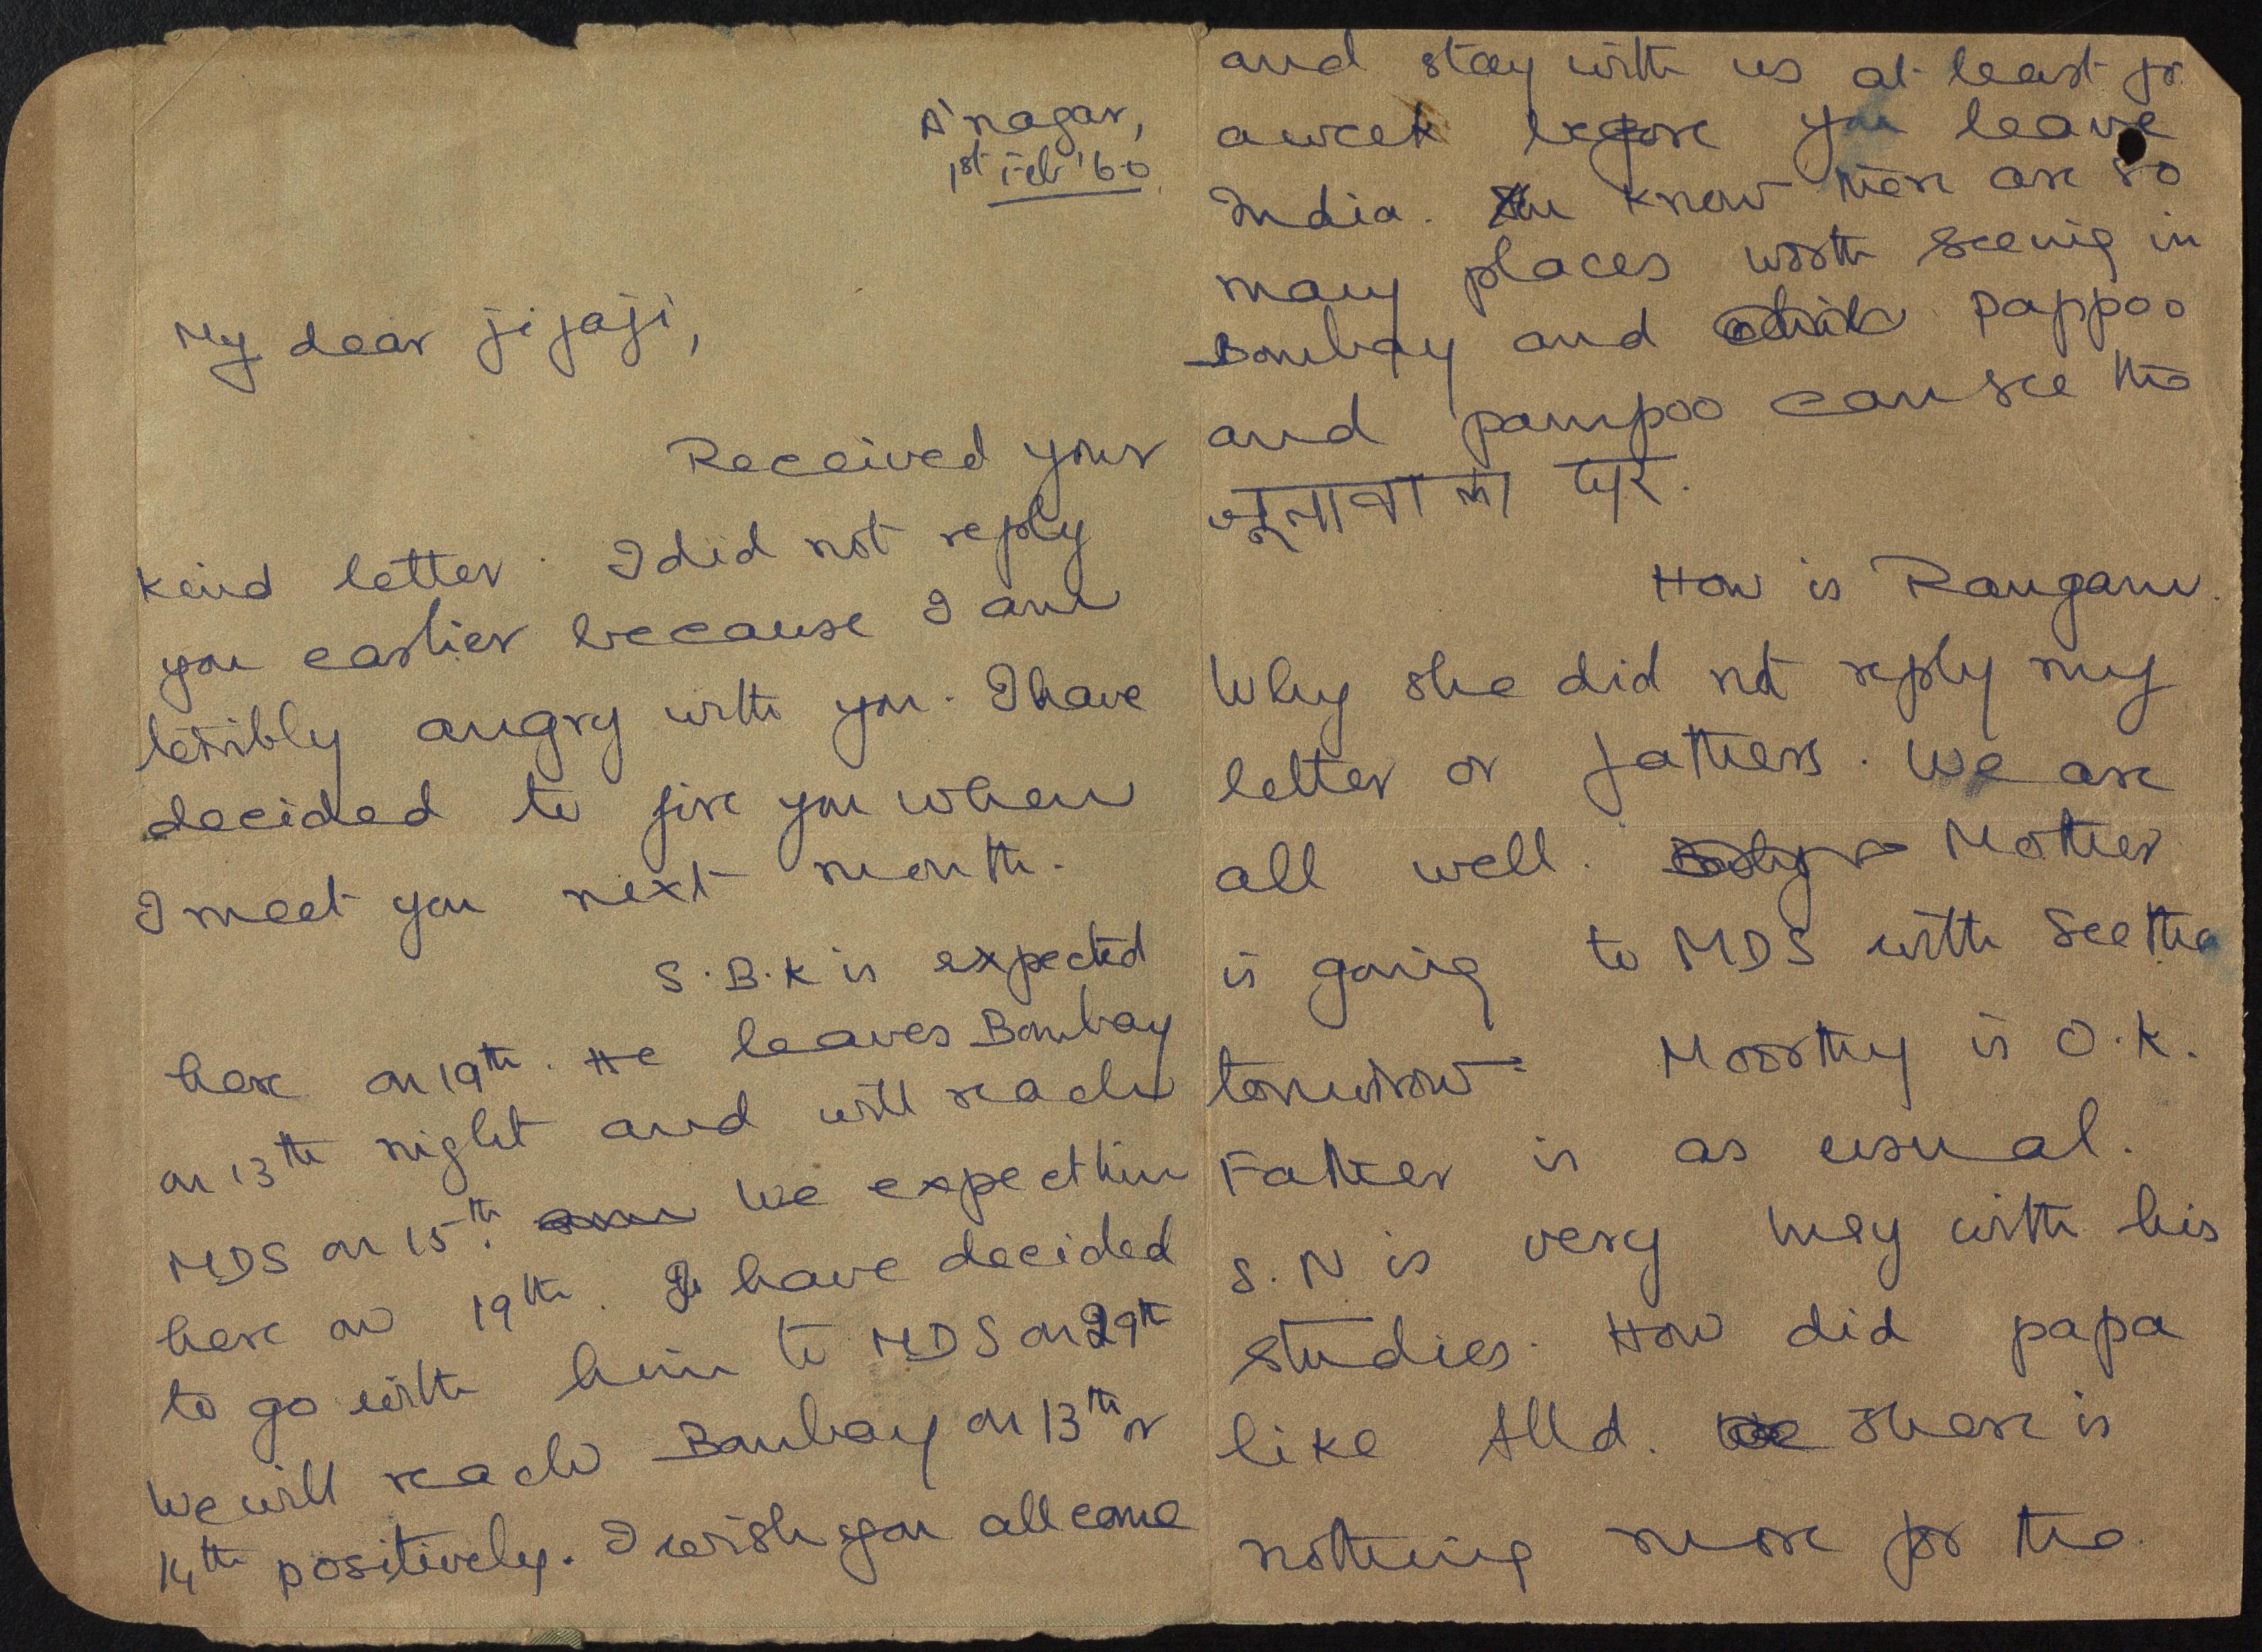 A'nagar,
1st Feb '60
My dear jijaji,
Received your
kind letter. I did not reply
you earlier because I am
terribly angry with you. I have
decided to fire you when
I meet you next month.
S.B.K is expected
here on 19th. He leaves Bombay
on 13th night and will reach
MDS on 15th. We expect him
here on 19th. I have decided
to go with him to MDS on 29th
We will reach Bombay on 13th or
14th positively. I wish you all come
and stay with us at least for
a week before you leave
India. You know there are so
many places worth seeing in
Bombay and Pappoo
and pampoo can see the
How is Rangam.
Why she did not reply my
letter or fathers. We are
all well. Mother
is going to MDS with Seetha
tomorrow. Moorthy is O.K.
Father is as usual.
S.N is very busy with his
studies. How did papa
like Alld. There is
nothing more for the